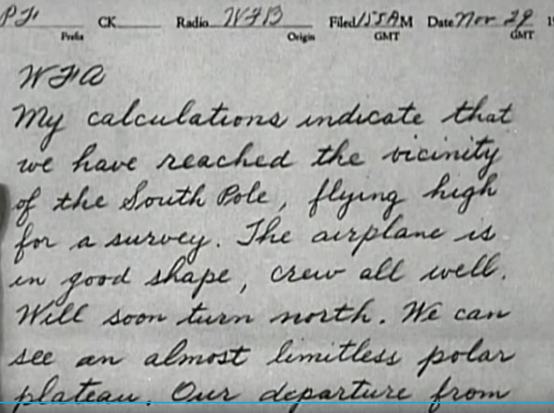 PF CK Radio WFB Filed 1155AM Date Nov 29 19
Prefix Origin GMT GMT
WFA
My calculations indicate that
we have reached the vicinity
of the South Pole, flying high
for a survey. The airplane is
in good shape, crew all well.
Will soon turn north. We can
see an almost limitless polar
plateau. Our departure from